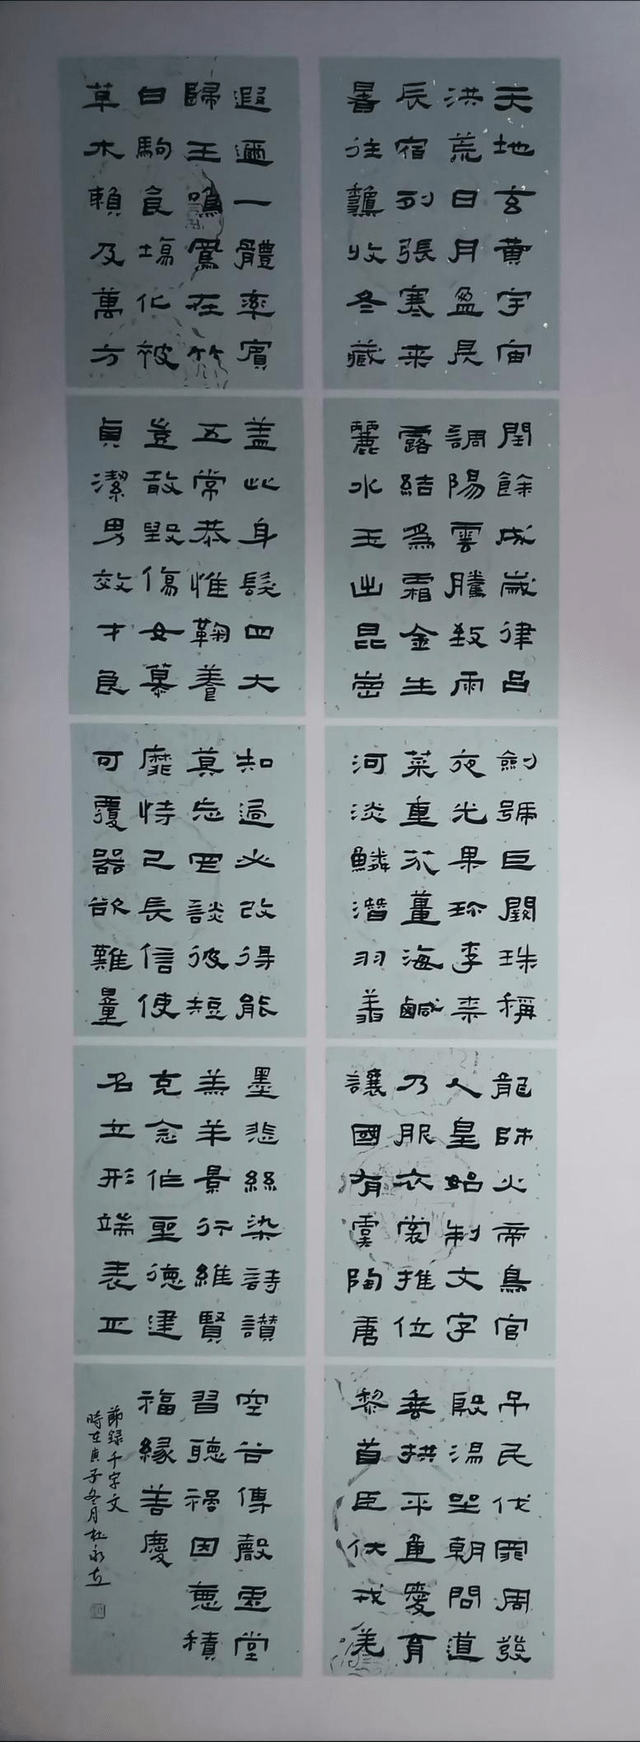 天地玄黄宇宙
洪荒日月盈昃
辰宿列張寒来
暑往龝收冬藏
閏餘成歲律吕
調陽雲騰致雨
露結爲霜金生
麗水玉出昆崗
劍號巨闕珠稱
夜光果珍李柰
菜重芥薑海鹹
河淡鱗潛羽翔
龍師火帝鳥官
人皇始制文字
乃服衣裳推位
讓國有虞陶唐
弔民伐罪周發
殷湯坐朝問道
垂拱平章愛育
黎首臣伏戎羌
遐邇一體率賓
歸王鳴鳳在竹
白駒食場化被
草木賴及萬方
蓋此身髮四大
五常恭惟鞠養
豈敢毀傷女慕
貞潔男效才良
知過必改得能
莫忘罔談彼短
靡恃己長信使
可覆器欲難量
墨悲絲染詩讃
羔羊景行維賢
克念作聖德建
名立形端表正
空谷傳聲虛堂
習聽禍因惡積
福緣善慶
節録千字文
時在庚子冬月杜永